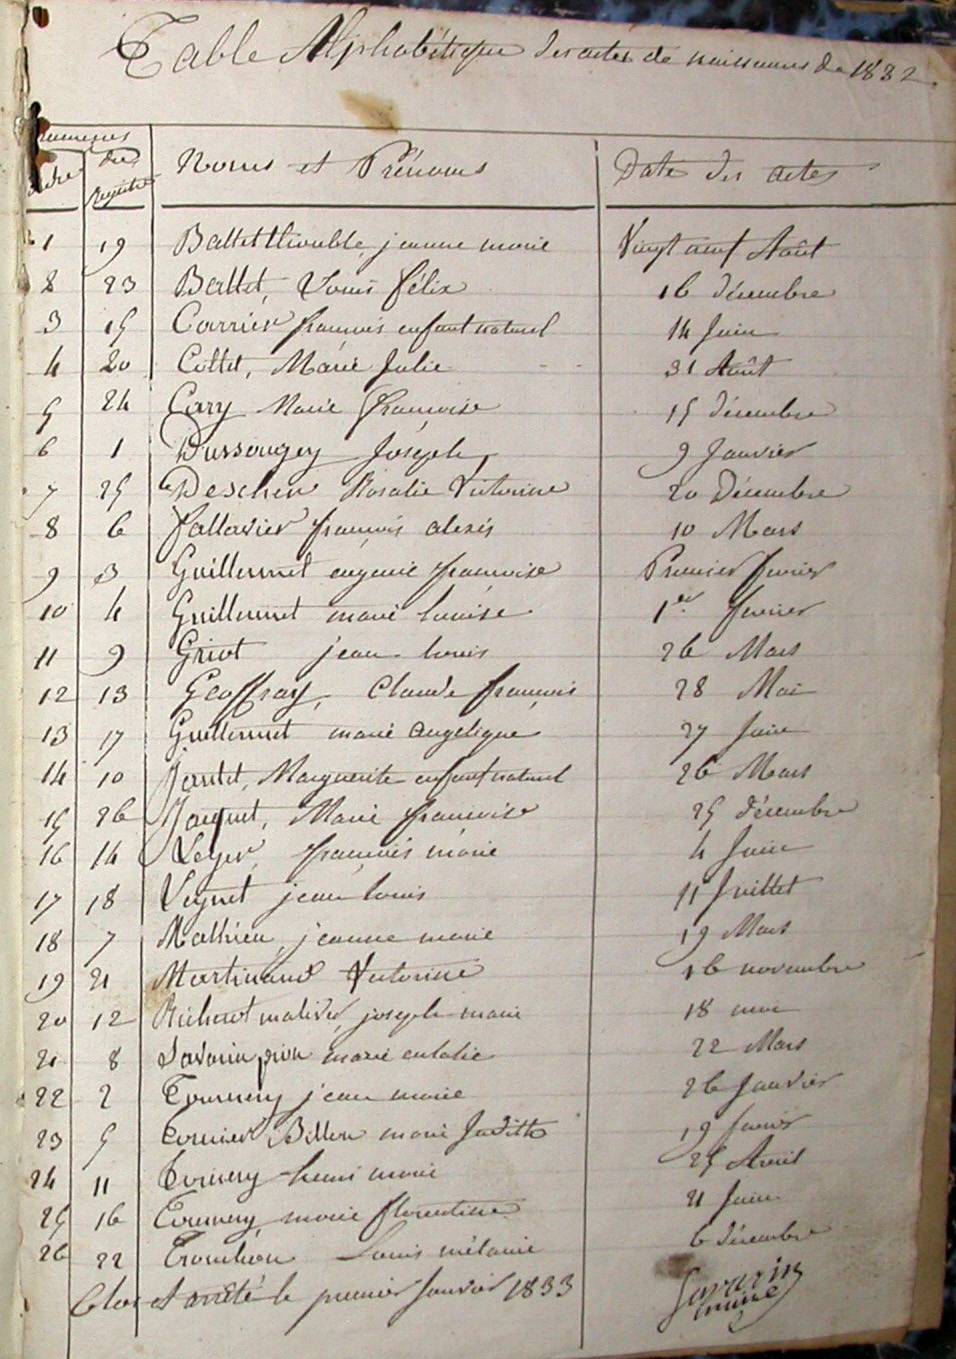 Table Alphabétique des actes de naissances de 1832.
numeros
ordre du Registre Noms et Prénoms Date des actes
1 19 Battet thouble, jeanne marie Vingt neuf Août
2 23 Battet, Louis félix 16 décembre
3 15 Carrier françois enfant naturel 14 Juin
4 20 Cottet, Marie Julie 31 Août
5 24 Cary Marie françoise 15 décembre
6 1 Dussougey Joseph, 9 Janvier
7 25 Deschen Rosalie Victorine 20 Décembre
8 6 fallavier françois alexis 10 Mars
9 3 Guillermet eugenie françoise Premier fevrier
10 4 Guillermet marie louise 1er fevrier
11 9 Griot jean louis 26 Mars
12 13 Geoffray, Claude françois 28 Mai
13 17 Guillermet marie angelique 27 Juin
14 10 Jantet, Marguerite enfant naturel 26 Mars
15 26 Jaquet, Marie françoise 25 décembre
16 14 Leger, françois marie 4 Juin
17 18 Veynet jean louis 11 Juillet
18 7 Mathieu, jeanne marie 19 Mars
19 21 Martinand Victorine 16 novembre
20 12 Richerot joseph marie 18 mai
21 8 Savarin marie eulalie 22 Mars
22 2 Tournery jean marie 26 Janvier
23 5 Billon marie Judith 19 fevrier
24 11 Tournery henri marie 25 Avril
25 16 Tournery marie florentine 21 Juin
26 22 Trouilloux Louis mélanie 6 décembre
Clos et arrêté le premier Janvier 1833
Savarin
maire